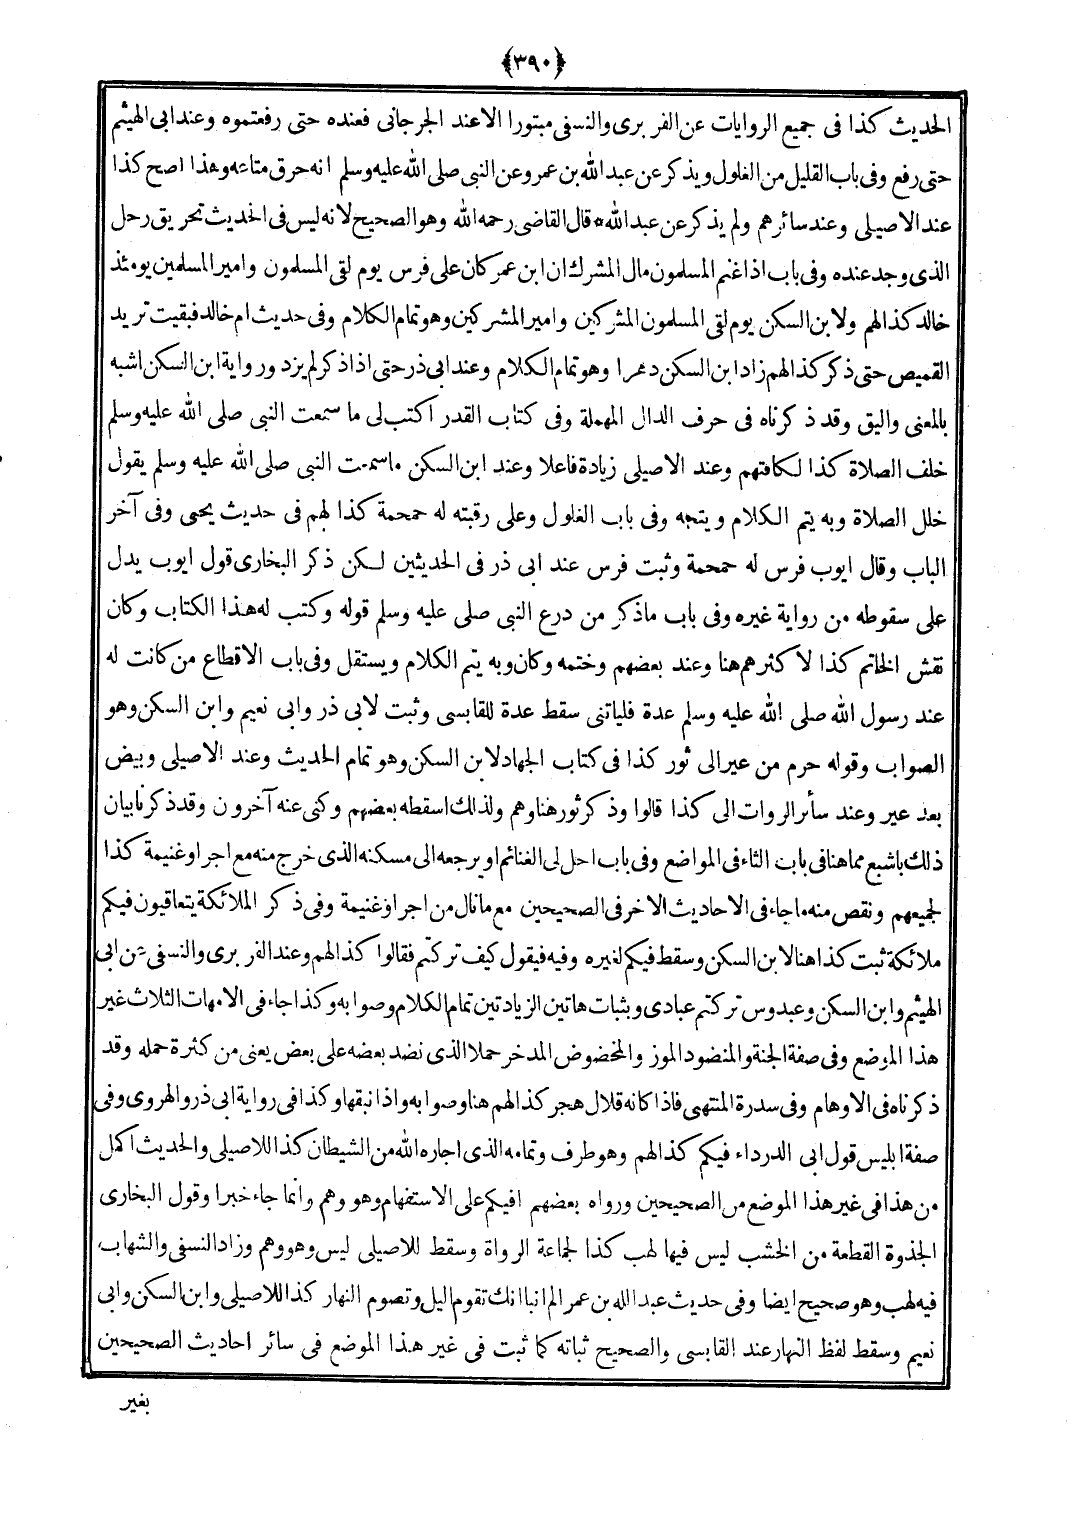 ﴿٣٩٠﴾
الحديث كذا فى جميع الروايات عن الفربرى والنسفى مبتورا الاعند الجرجانى فعنده حتى رفعتموه وعندابى الهيثم
حتى رفع وفى باب القليل من الغلول ويذكر عن عبدالله بن عمرو عن النبى صلى الله عليه وسلم انه حرق متاعه وهذا اصح كذا
عند الاصيلى وعند سائرهم ولم يذكر عن عبدالله * قال القاضى رحمه الله وهو الصحيح لانه ليس فى الحديث تحريق رحل
الذى وجد عنده وفى باب اذا غنم المسلمون مال المشرك ان ابن عمر كان على فرس يوم لقى المسلمون وامير المسلمين يومئذ
خالد كذالهم ولابن السكن يوم لقى المسلمون المشركين وامير المشركين وهو تمام الكلام وفى حديث ام خالد فبقيت تريد
القميص حتى ذكر كذالهم زاد ابن السكن دهرا وهو تمام الكلام وعند ابى ذر حتى اذا ذكر لم يزد ورواية ابن السكن اشبه
بالمعنى واليق وقد ذكرناه فى حرف الدال المهملة وفى كتاب القدر اكتب لى ما سمعت النبى صلى الله عليه وسلم
خلف الصلاة كذا لكافتهم وعند الاصيلى زيادة فاعلا وعند ابن السكن ماسمعت النبى صلى الله عليه وسلم يقول
خلل الصلاة وبه يتم الكلام ويتجه وفى باب الغلول وعلى رقبته له حمحمة كذا لهم فى حديث يحيى وفى آخر
الباب وقال ايوب فرس له حمحمة وثبت فرس عند ابى ذر فى الحديثين لكن ذكر البخارى قول ايوب يدل
على سقوطه من رواية غيره وفى باب ماذكر من درع النبى صلى عليه وسلم قوله وكتب له هذا الكتاب وكان
نقش الخاتم كذا لاكثرهم هنا وعند بعضهم وختمه وكان وبه يتم الكلام ويستقل وفى باب الاقطاع من كانت له
عند رسول الله صلى الله عليه وسلم عدة فلياتنى سقط عدة للقابسى وثبت لابى ذر وابى نعيم وابن السكن وهو
الصواب وقوله حرم من عير الى ثور كذا فى كتاب الجهاد لابن السكن وهو تمام الحديث وعند الاصيلى وبيض
بعد عير وعند سائر الروات الى كذا قالوا وذكر ثور هنا وهم ولذلك اسقطه بعضهم وكنى عنه آخرون وقد ذكرنا بيان
ذلك باشبع مما هنا فى باب الثاء فى المواضع وفى باب احل لى الغنائم او يرجعه الى مسكنه الذى خرج منه مع اجر او غنيمة كذا
لجميعهم ونقص منه ماجاء فى الاحاديث الاخر فى الصحيحين مع ما نال من اجر او غنيمة وفى ذكر الملائكة يتعاقبون فيكم
ملائكة ثبت كذا هنا لابن السكن وسقط فيكم لغيره وفيه فيقول كيف تركتم فقالوا كذالهم وعند الفربرى والنسفى عن ابى
الهيثم وابن السكن وعبدوس تركتم عبادى وبثبات هاتين الزيادتين تمام الكلام وصوابه وكذا جاء فى الامهات الثلاث غير
هذا الموضع وفى صفة الجنة والمنضود الموز والمخضوض المدخر حملا الذى نضد بعضه على بعض يعنى من كثرة حمله وقد
ذكرناه فى الاوهام وفى سدرة المنتهى فاذا كانه قلال هجر كذالهم هنا وصوابه واذا نبقها وكذا فى رواية ابى ذر والهروى وفى
صفة ابليس قول ابى الدرداء فيكم كذالهم وهو طرف وتمامه الذى اجاره الله من الشيطان كذا للاصيلى والحديث اكمل
من هذا فى غير هذا الموضع من الصحيحين ورواه بعضهم افيكم على الاستفهام وهو وهم وانما جاء خبرا وقول البخارى
الجذوة القطعة من الخشب ليس فيها لهب كذا لجماعة الرواة وسقط للاصيلى ليس وهو وهم وزاد النسفى والشهاب
فيه لهب وهو صحيح ايضا وفى حديث عبدالله بن عمر الم انبا انك تقوم اليل وتصوم النهار كذا للاصيلى وابن السكن وابى
نعيم وسقط لفظ النهار عند القابسى والصحيح ثباته كما ثبت فى غير هذا الموضع فى سائر احاديث الصحيحين
بغير